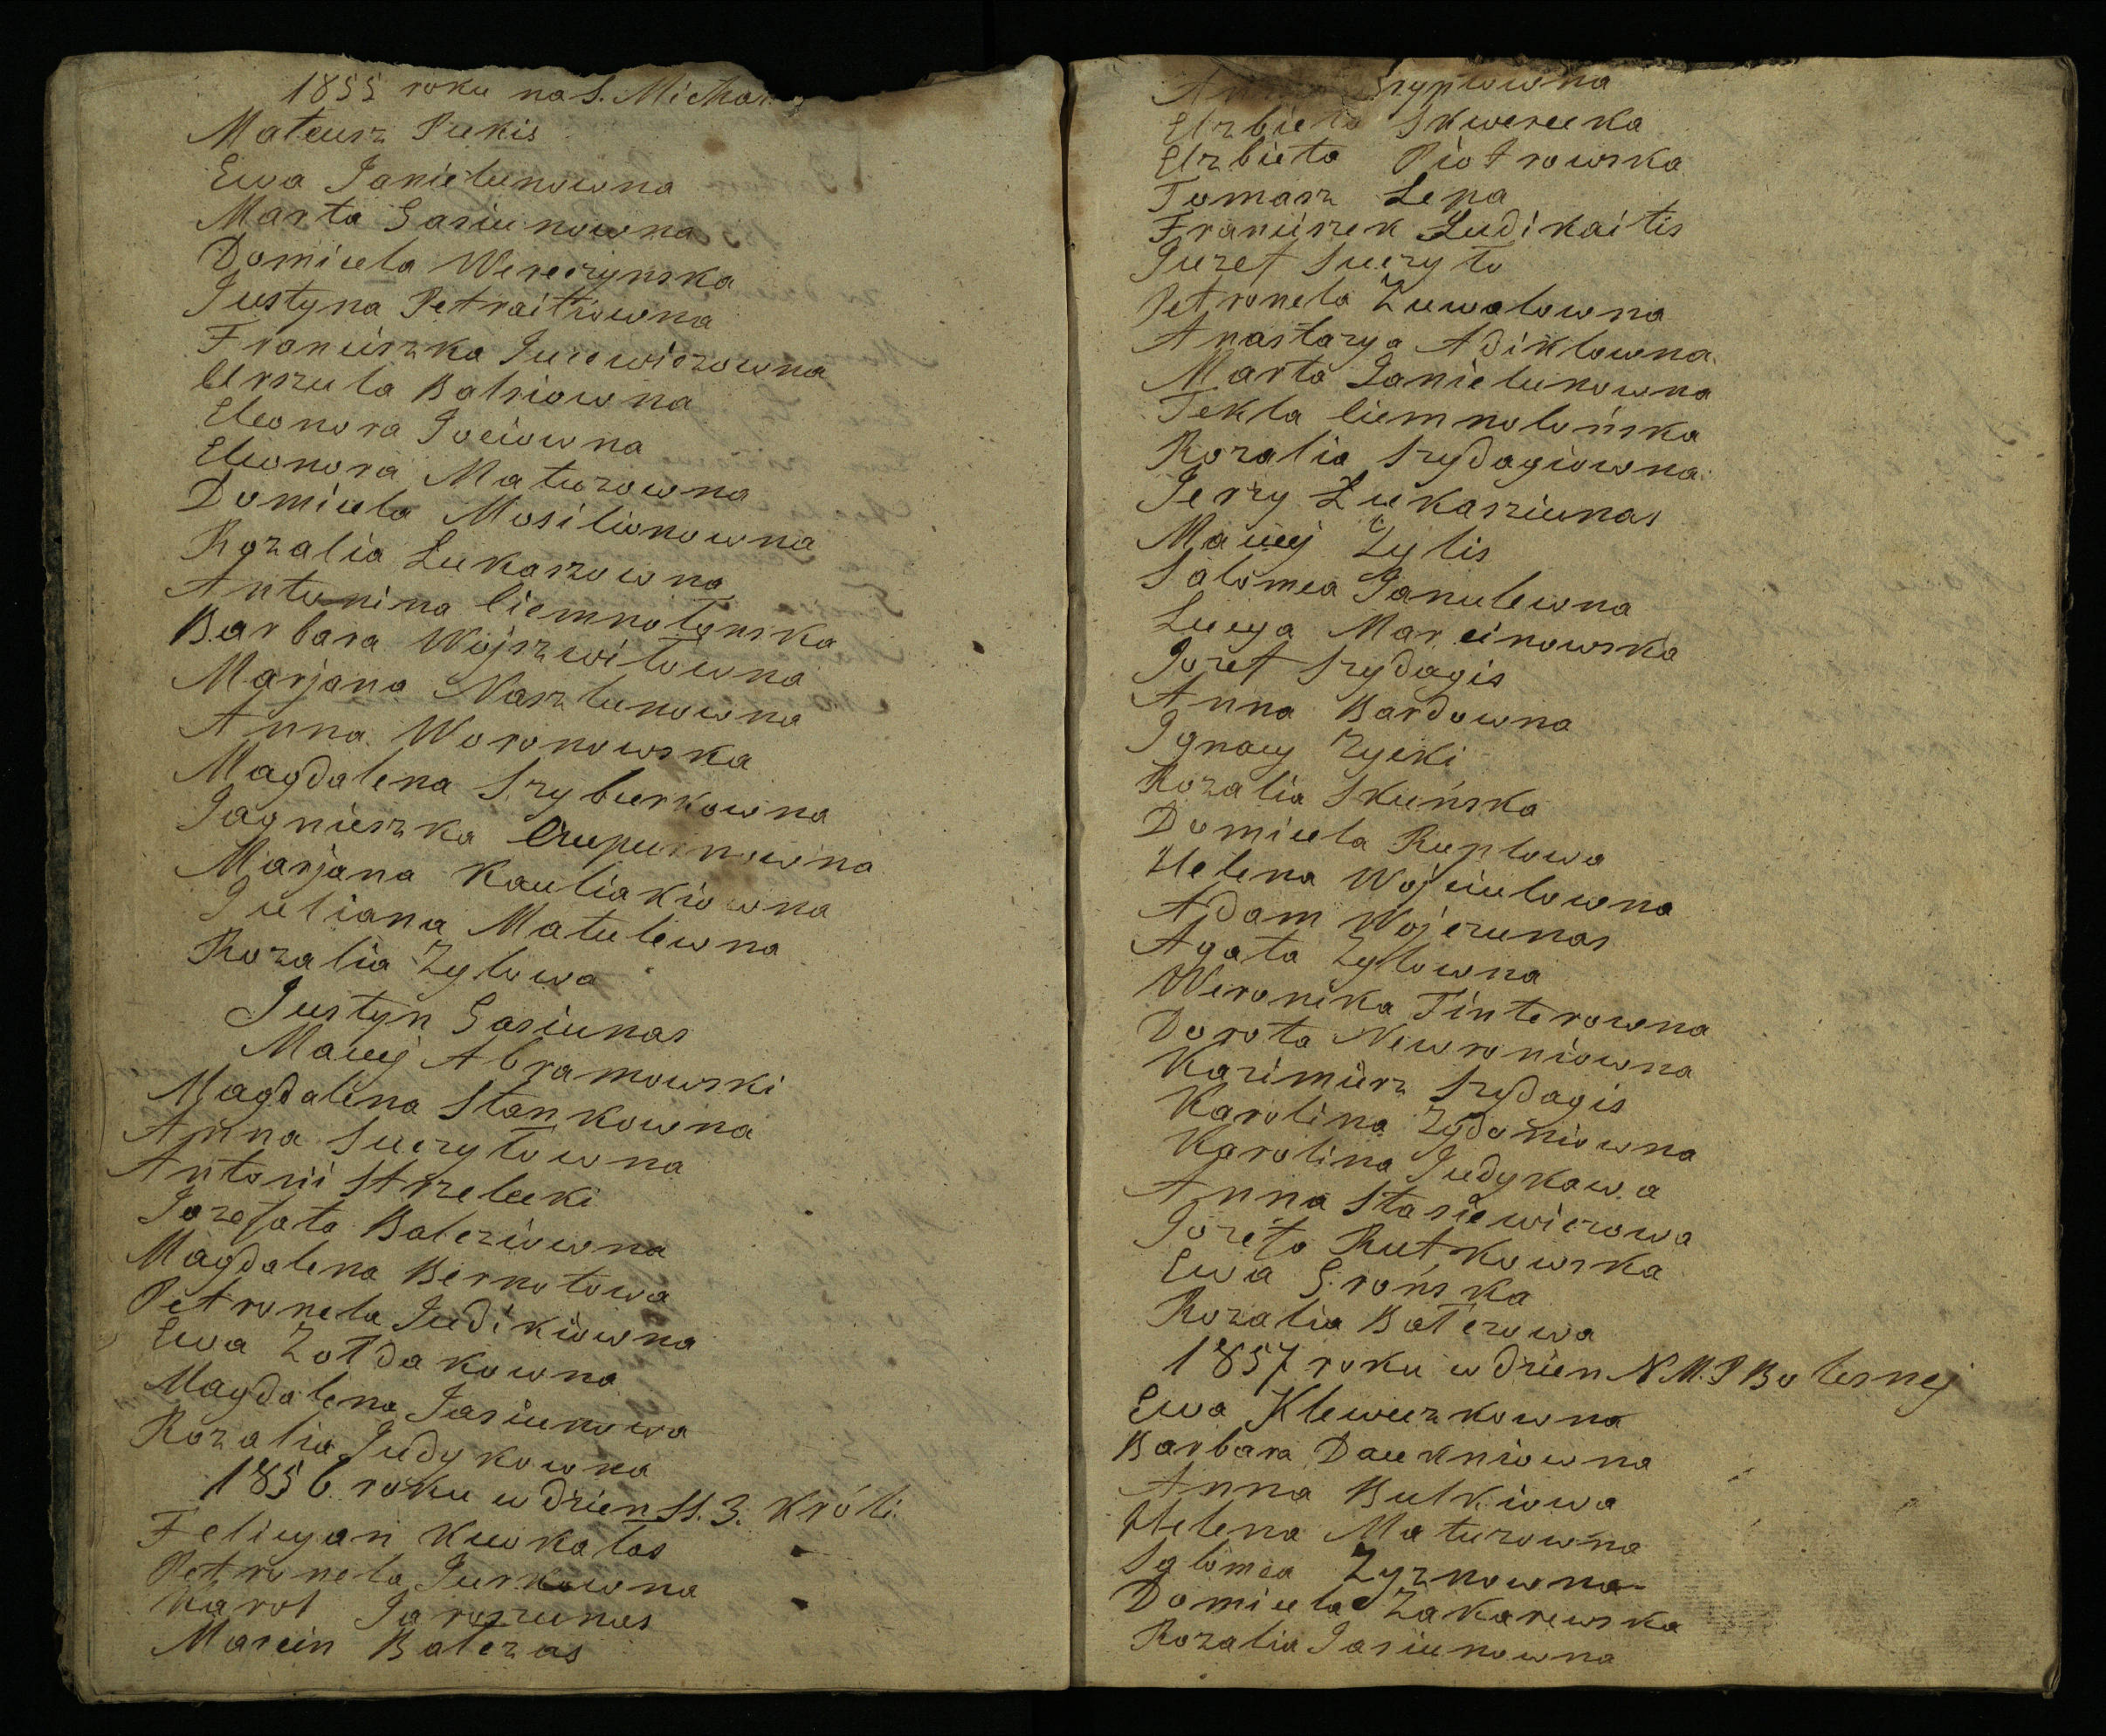 1855 roku na S. Micha
Mateusz Pukis
Ewa Janielunowna
Marta Gasiunowna
Domicela Wereczynska
Justyna Petraitiowna
Franciszka Jucewiczowna
Urszula Balsiowna
Eleonora Jociowna
Eleonora Matuzowna
Domicela Mosilionowna
Rozalia Łukaszowna
Antonina Ciemnolonska
Barbara Wojszwilowna
Marjana Narzlunowna
Anna Woronowska
Magdalena Szyburkowna
Jagnieszka Czupurnowna
Marjana Kauliakiowna
Juliana Matulewna
Rozalia Zylowa
Justyn Gasiunas
Maciej Abramowski
Magdalena Stankowna
Anna Suczylowna
Antoni Strzelecki
Jozefata Balcziowna
Magdalena Bernotowa
Petronela Judikiowna
Ewa Zołdakowna
Magdalena Jasiunowa
Rozalia Judykowna
1856 roku w dzien SS. 3. Króli
Felicyan Kuwkalas
Petronela Jurkowna
Karol Jaroszunas
Marcin Balczas
Szyplowna
Elzbieta Skwerecka
Elzbieta Piotrowska
Tomasz Lepa
Franciszek Ludikaitis
Juzef Suczyło
Petronela Zuwalowna
Anastazya Adiklowna
Marta Janielunowna
Tekla Ciemnolońska
Rozalia Szydagiowna
Jerzy Łukasziunas
Maciej Zylis
Salomea Janulewna
Lucya Marcinowska
Jozef Szydagis
Anna Bardowna
Ignacy Zycki
Rozalia Skuńska
Domicela Ruplowa
Helena Wojciulowna
Adam Wojczunas
Agata Zylowna
Weronika Tinterowna
Dorota Newroniowna
Kazimierz Szydagis
Karolina Zydoniowna
Karolina Judykowa
Anna Stasiewiczowa
Jozefa Rutkowska
Ewa Grońska
Rozalia Batczowa
1857 roku w dzien N.M.P Bolesnej
Ewa Kleweczkowna
Barbara Daukniowna
Anna Bulkiowa
Helena Matuzowna
Salomea Zyznowna
Domicela Zakarewska
Rozalia Jasiunowna